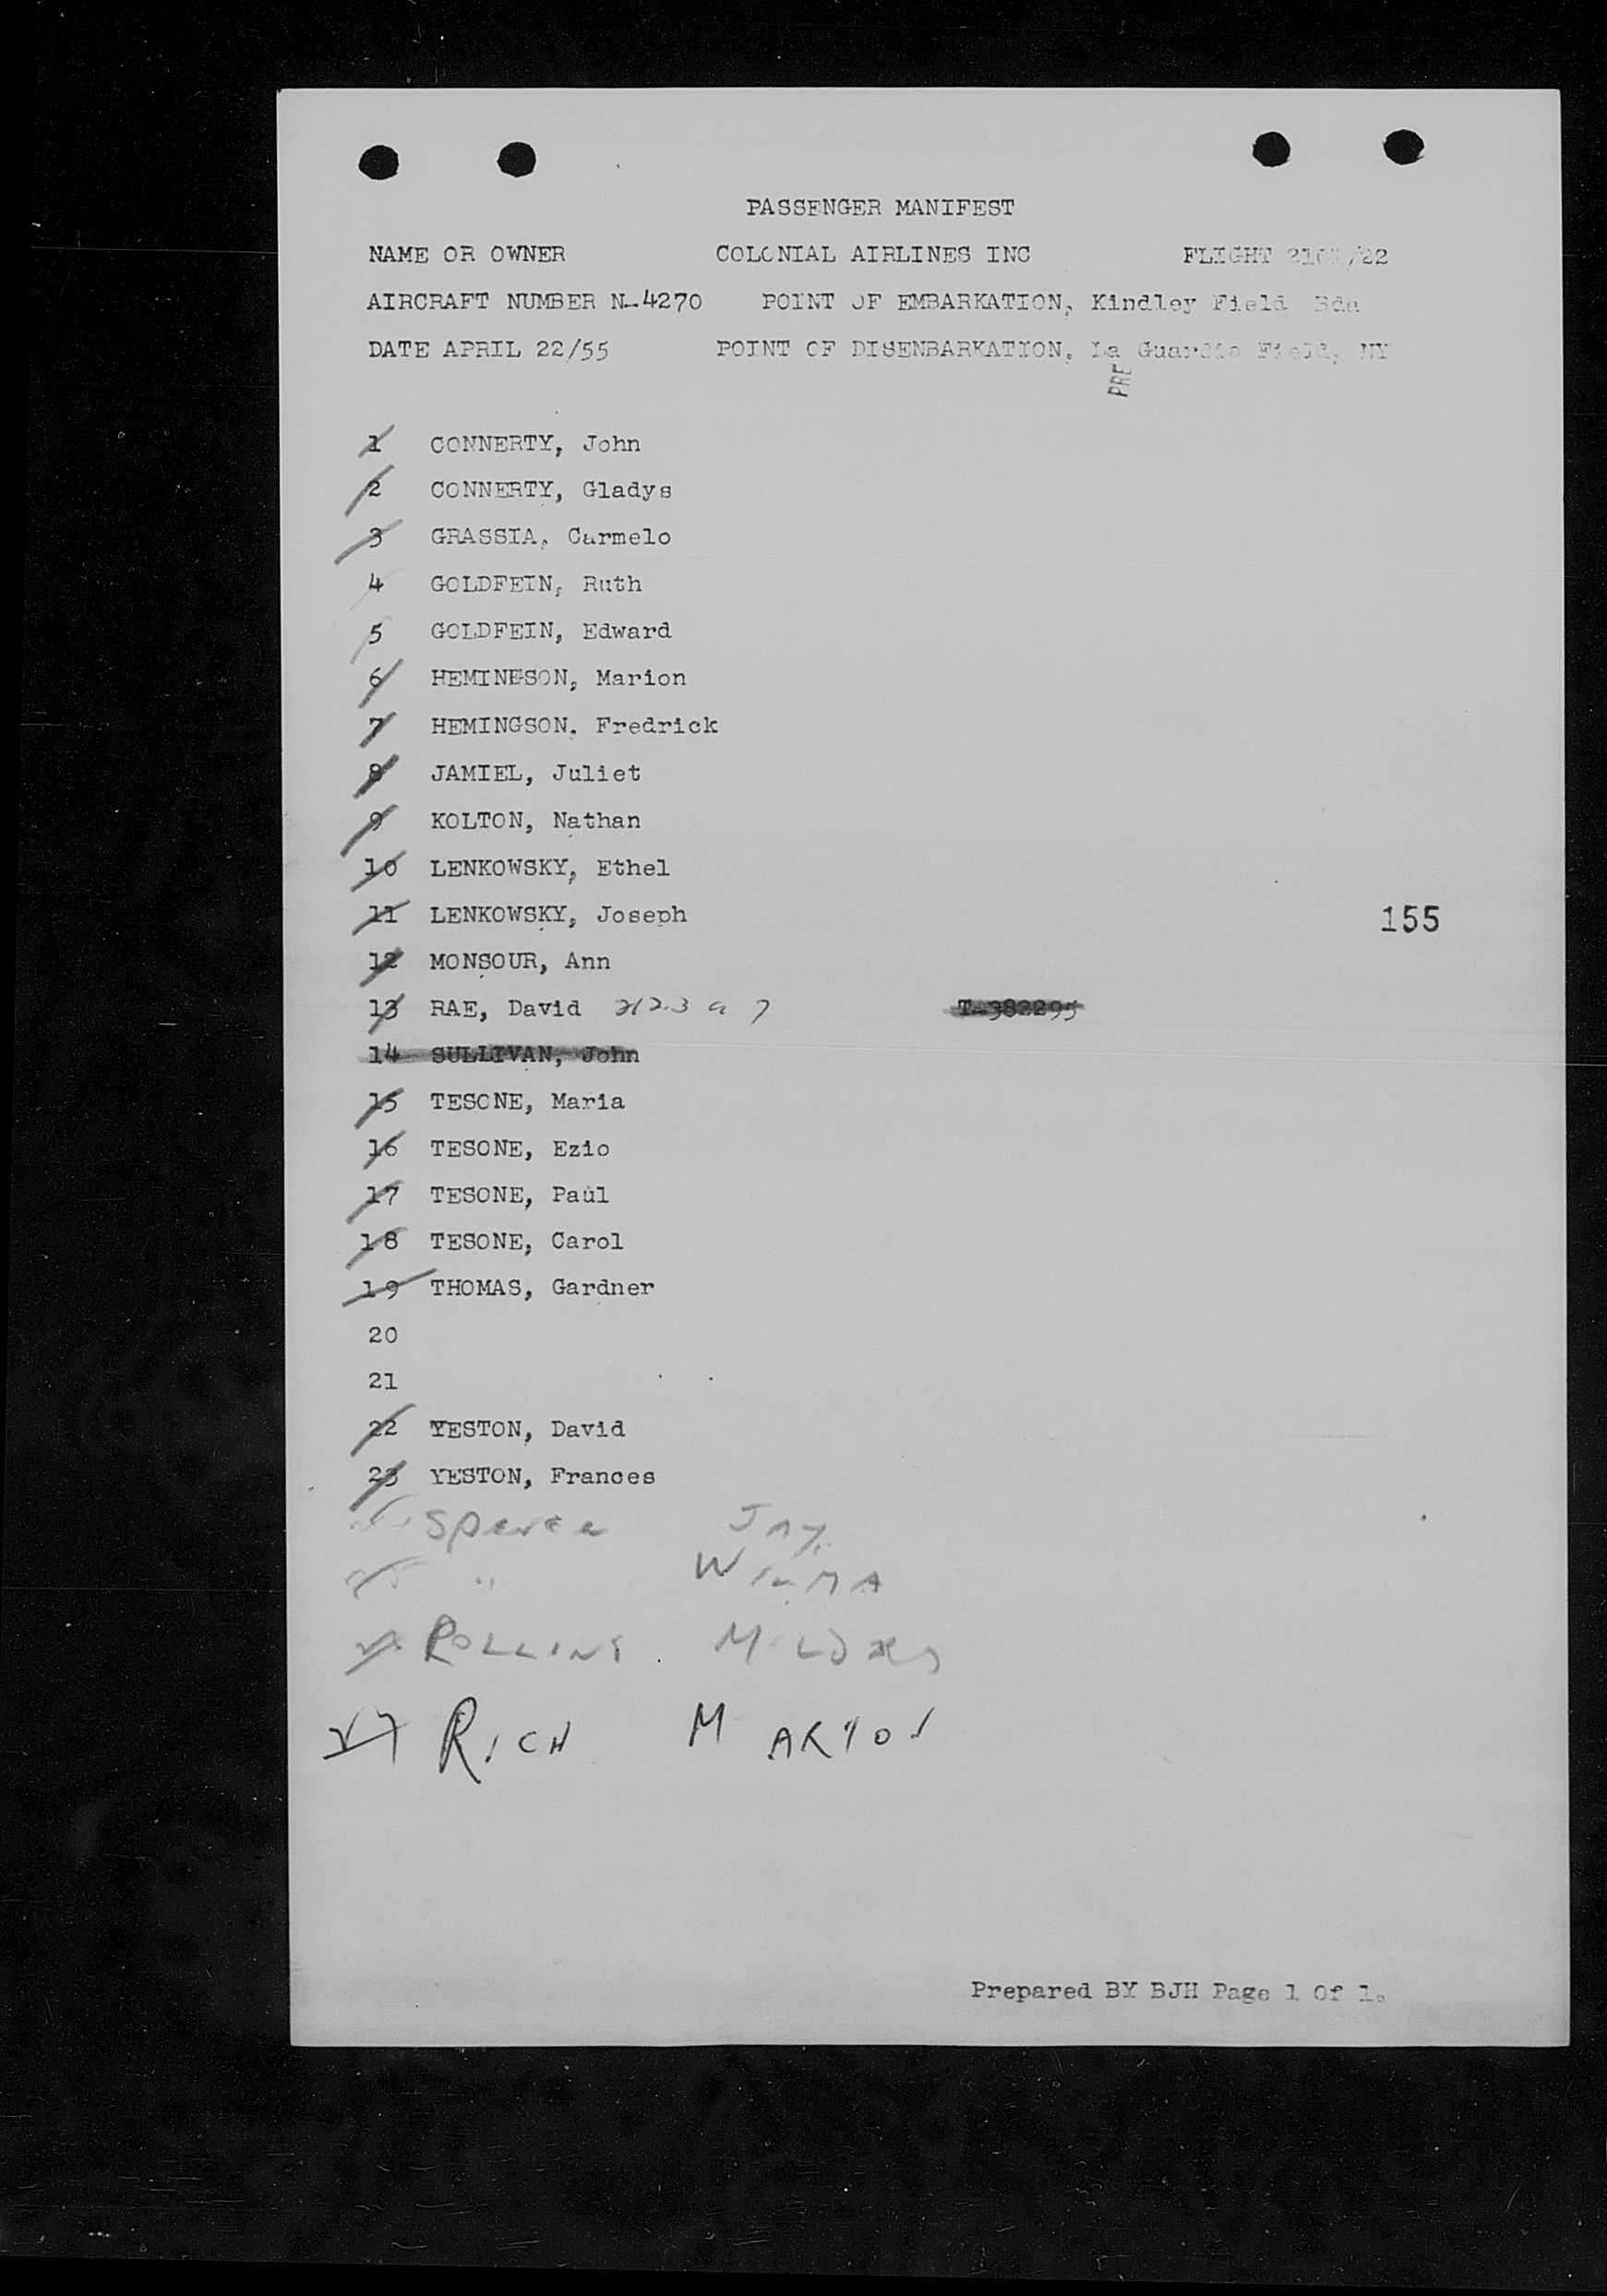 PASSENGER MANIFEST
NAME OR OWNER COLONIAL AIRLINES INC FLIGHT
AIRCRAFT NUMBER N-4270 POINT OF EMBARKATION, Kindley Field Bda
DATE APRIL 22/55 POINT OF DISENBARKATION, La Guardia Field, NY
PRE
1 CONNERTY, John
2 CONNERTY, Gladys
3 GRASSIA, Carmelo
4 GOLDFEIN, Ruth
5 GOLDFEIN, Edward
6 HEMINGSON, Marion
7 HEMINGSON, Fredrick
8 JAMIEL, Juliet
9 KOLTON, Nathan
10 LENKOWSKY, Ethel
11 LENKOWSKY, Joseph
155
12 MONSOUR, Ann
13 RAE, David T-382295
14 SULLIVAN, John
15 TESONE, Maria
16 TESONE, Ezio
17 TESONE, Paul
18 TESONE, Carol
19 THOMAS, Gardner
20
21
22 YESTON, David
23 YESTON, Frances
Jay
" WILMA
ROLLINS
27 RICH
Prepared BY BJH Page 1 Of 1.